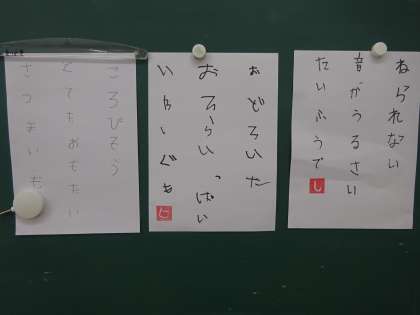 ねられない
音がうるさい
たいふうで
し
おどろいた
おそらいっぱい
いわしぐも
に
ころびそう
とてもおもたい
さつまいも